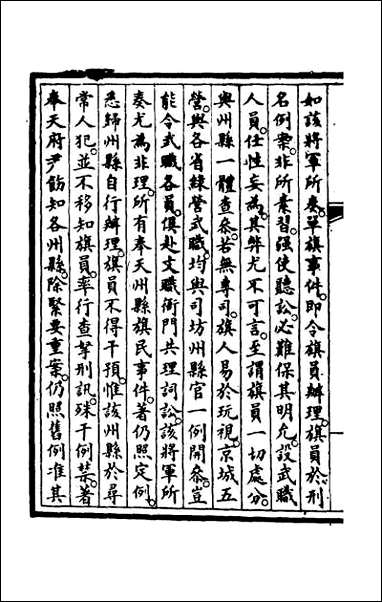 如該將軍所奏單旗事件即令旗員辦理旗員於刑
名例案非所素習強使聽訟必難保其明允設武職
人員任性妄為其弊尤不可言至謂旗員一切處分
與州縣一體查叅若無專司旗人易於玩視京城五
營與各省綠營武職均與司坊州縣官一例開叅豈
能令武職各員俱赴文職衙門共理詞訟該將軍所
奏尤為非理所有奉天州縣旗民事件著仍照定例
悉歸州縣自行辦理旗員不得干預惟該州縣於尋
常人犯並不移知旗員率行查拏刑訊殊干例禁著
奉天府尹飭知各州縣除緊要重案仍照舊例准其